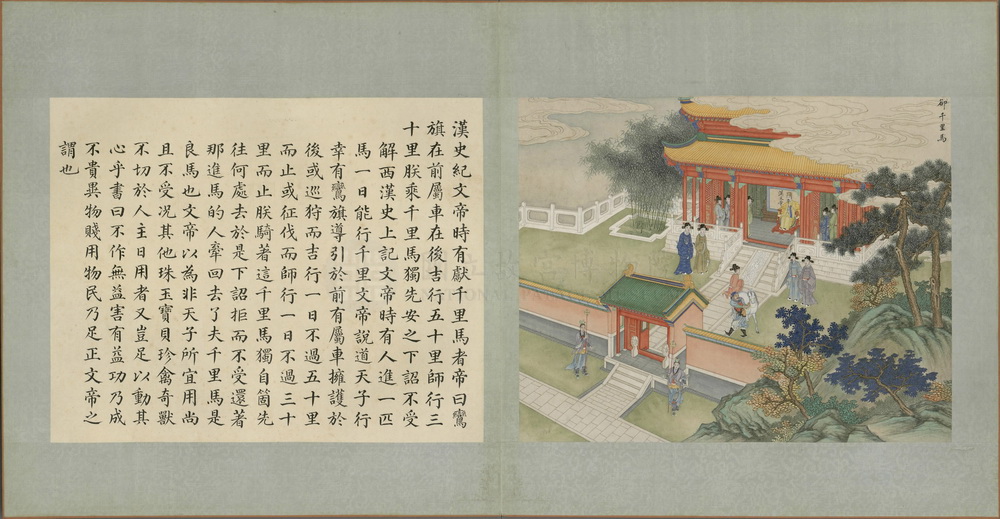 卻千里馬
漢史紀文帝時有獻千里馬者帝曰鸞
旗在前屬車在後吉行五十里師行三
十里朕乘千里馬獨先安之下詔不受
解西漢史上記文帝時有人進一匹
馬一日能行千里文帝說道天子行
幸有鸞旗導引於前有屬車擁護於
後或巡狩而吉行一日不過五十里
而止或征伐而師行一日不過三十
里而止朕騎著這千里馬獨自箇先
往何處去於是下詔拒而不受還著
那進馬的人牽回去了夫千里馬是
良馬也文帝以為非天子所宜用尚
且不受況其他珠玉寶貝珍禽奇獸
不切於人主日用者又豈足以動其
心乎書曰不作無益害有益功乃成
不貴異物賤用物民乃足正文帝之
謂也